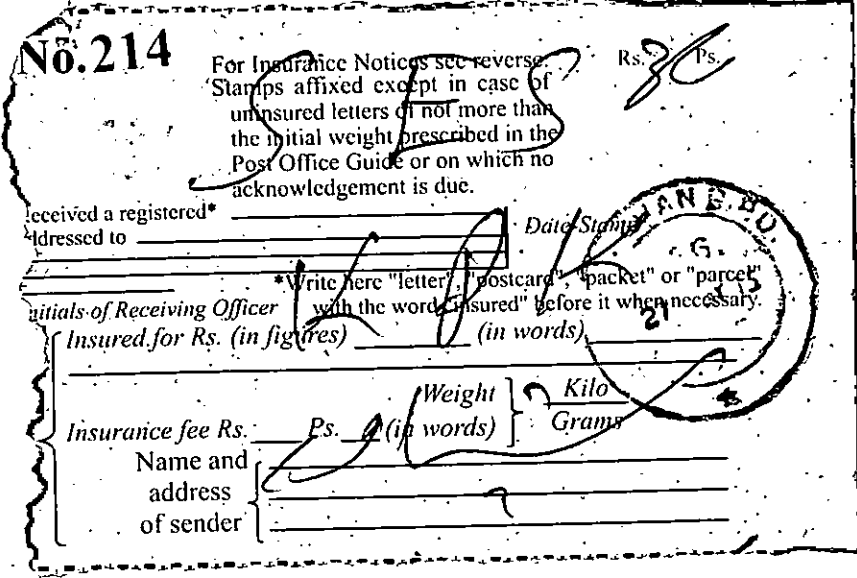 No.214
For Insurance Notices see reverse.
Rs. Ps.
Stamps affixed except in case of
uninsured letters of not more than
the initial weight prescribed in the
Post Office Guide or on which no
acknowledgement is due.
eceived a registered*
ddressed to
Date-Stamp
*Write here "letter", "postcard", "packet" or "parcel"
with the word "insured" before it when necessary.
nitials of Receiving Officer
Insured for Rs. (in figures) (in words)
Weight Kilo
Insurance fee Rs. Ps. (in words) Grams
Name and
address
of sender